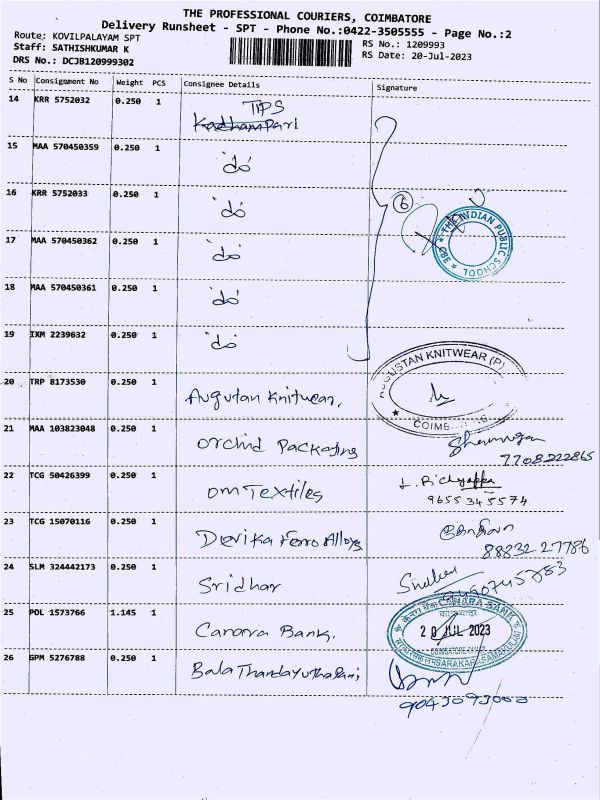 THE PROFESSIONAL COURIERS, COIMBATORE
Delivery Runsheet - SPT - Phone No.:0422-3505555 - Page No.:2
Route: KOVILPALAYAM SPT
RS No.: 1209993
Staff: SATHISHKUMAR K
RS Date: 20-Jul-2023
DRS No.: DCJB120999302
S No Consignment No Weight PCS Consignee Details Signature
14 KRR 5752032 0.250 1 TIPS
15 MAA 570450359 0.250 1 "do"
16 KRR 5752033 0.250 1 "do"
6
THE INDIAN PUBLIC SCHOOL CBE
17 MAA 570450362 0.250 1 "do"
18 MAA 570450361 0.250 1 "do"
19 IXM 2239632 0.250 1 "do"
20 TRP 8173530 0.250 1 Augutan Knitwear,
AUGUSTAN KNITWEAR (P)
21 MAA 103823048 0.250 1 Orchid Packaging
7708222865
22 TCG 50426399 0.250 1 Om Textiles
9655345574
23 TCG 15070116 0.250 1 Devika Ferro Alloys
88832 27786
24 SLM 324442173 0.250 1 Sridhar
25 POL 1573766 1.145 1 Canara Bank,
CANARA BANK
20 JUL 2023
26 GPM 5276788 0.250 1 Bala Thandayuthapani